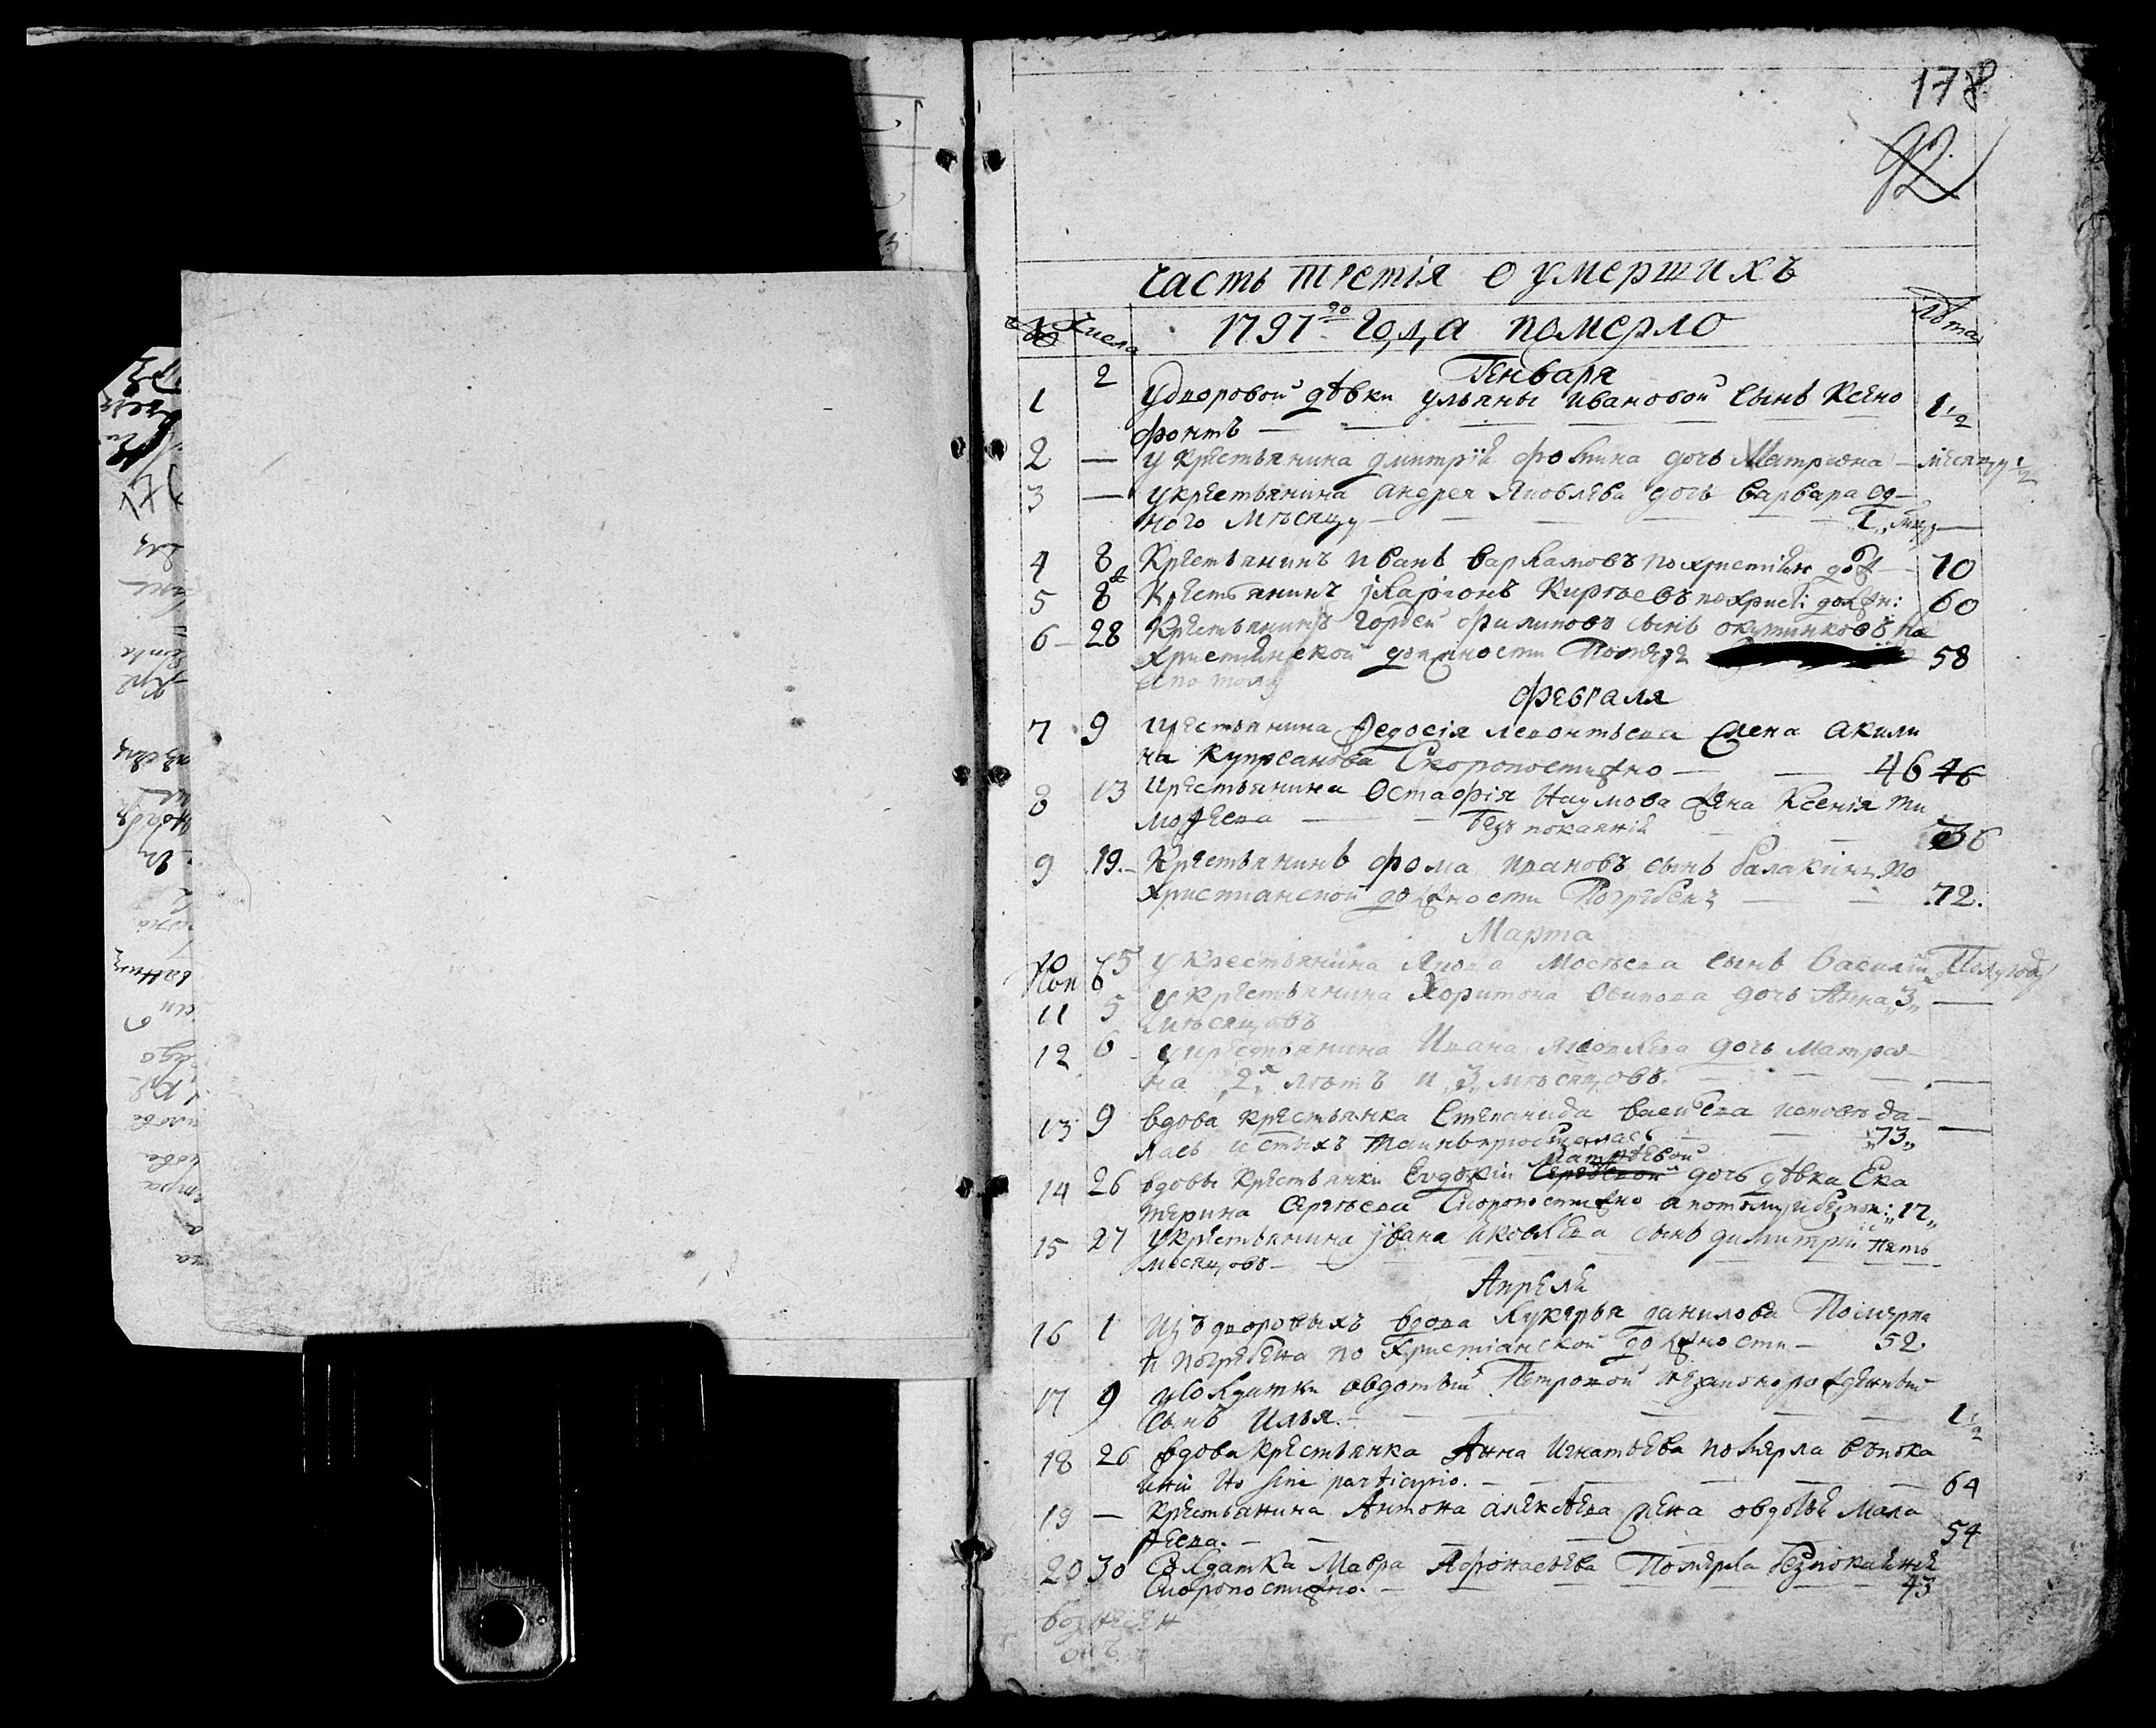 178
92
часть третія о умершихъ
№ Числа 1797го года померло Лѣта
Генваря
1 2 У дворовой дѣвки ульяны ивановой сынъ Ксено
фонтъ — 1 1/2
2 — у крестьянина дмитрія фомина дочь Матрѡна —
3 — у крестьянина андрея яковлева дочь варвара од-
ного мѣсяцу — 1
4 8 Крестьянинъ иванъ варламовъ по христіян дол 70
5 8 Крестьянинъ іларіонъ Киреевъ по христі: должн: 60
6 28 Крестьянинъ Гордѣй филиповъ сынъ по
христіянской должности 58
потому
февраля
7 9 крестьянина Ѳедосія леонтьева жена акили
на купреанова Скоропостижно — 46 46
8 13 крестьянина Остафія Наумова жена Ксенія ти
моѳеева — безъ покаянія 36
9 19. Крестьянинъ фома ивановъ сынъ балакинъ по
христианской должности Погребенъ — 72.
Марта
10 5 У крестьянина Якова Мосѣева сынъ Василій Полугоду
11 5 у крестьянина Харитона Осипова дочь Анна „3„ —
мѣсяцовъ
12 6 у крестьянина Ивана яковлева дочь матрѡ-
на „2„ лѣтъ и „3„ мѣсяцовъ. —
13 9 вдова крестьянка Степанида васильева исповѣда-
лась и стыхъ таинъ приобщалась — „73„ —
матвѣевой
14 26 вдовы крестьянки Евдокіи Сергѣевой дочь дѣвка Ека
терина Сергѣева Скоропостижно а потому и безпок: „17„
15 27 У крестьянина іѵана яковлева сынъ димитрій пять
мѣсяцовъ —
Апреля
16 1 Изъ дворовыхъ вдова Лукерья данилова Померла
и погребена по христіанской должности — 52
17 9 У солдатки авдотьи Петровой незаконорожденный
сынъ Илья. — 1 1/2
18 26 вдова крестьянка Анна Игнатьева померла въ пока
яніи но sine participio. — 64
19 — Крестьянина Антона алексѣева жена овдотья Мала
ѳеева. — 54
20 30 Солдатка Мавра Афонасьева Померла безпокаянія
Скоропостижно. — 43